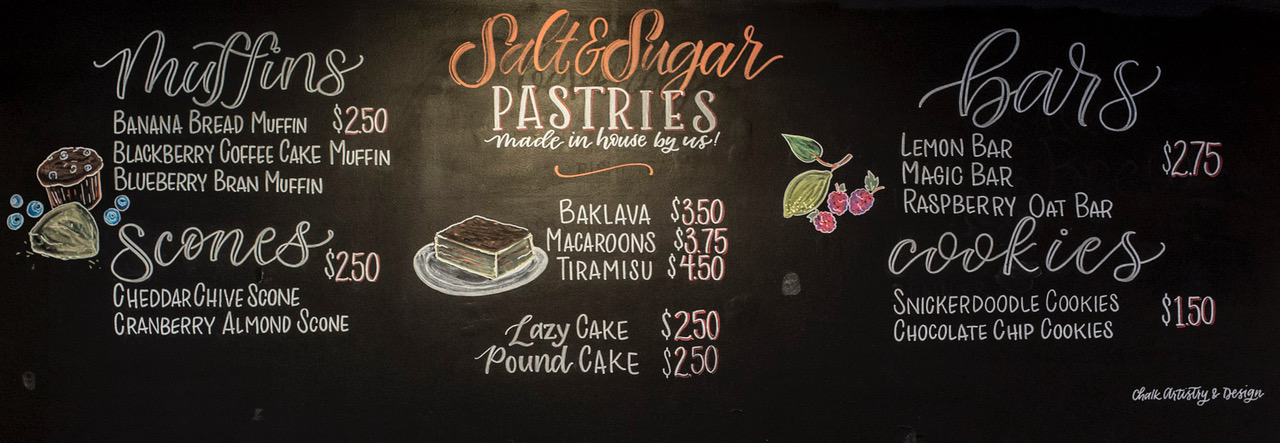 Muffins
BANANA BREAD MUFFIN $2.50
BLACKBERRY COFFEE CAKE MUFFIN
BLUEBERRY BRAN MUFFIN
Scones
$2.50
CHEDDAR CHIVE SCONE
CRANBERRY ALMOND SCONE
Salt & Sugar
PASTRIES
made in house by us!
BAKLAVA $3.50
MACAROONS $3.75
TIRAMISU $4.50
Lazy CAKE $2.50
Pound CAKE $2.50
bars
LEMON BAR
MAGIC BAR $2.75
RASPBERRY OAT BAR
cookies
SNICKERDOODLE COOKIES
CHOCOLATE CHIP COOKIES $1.50
Chalk Artistry & Design